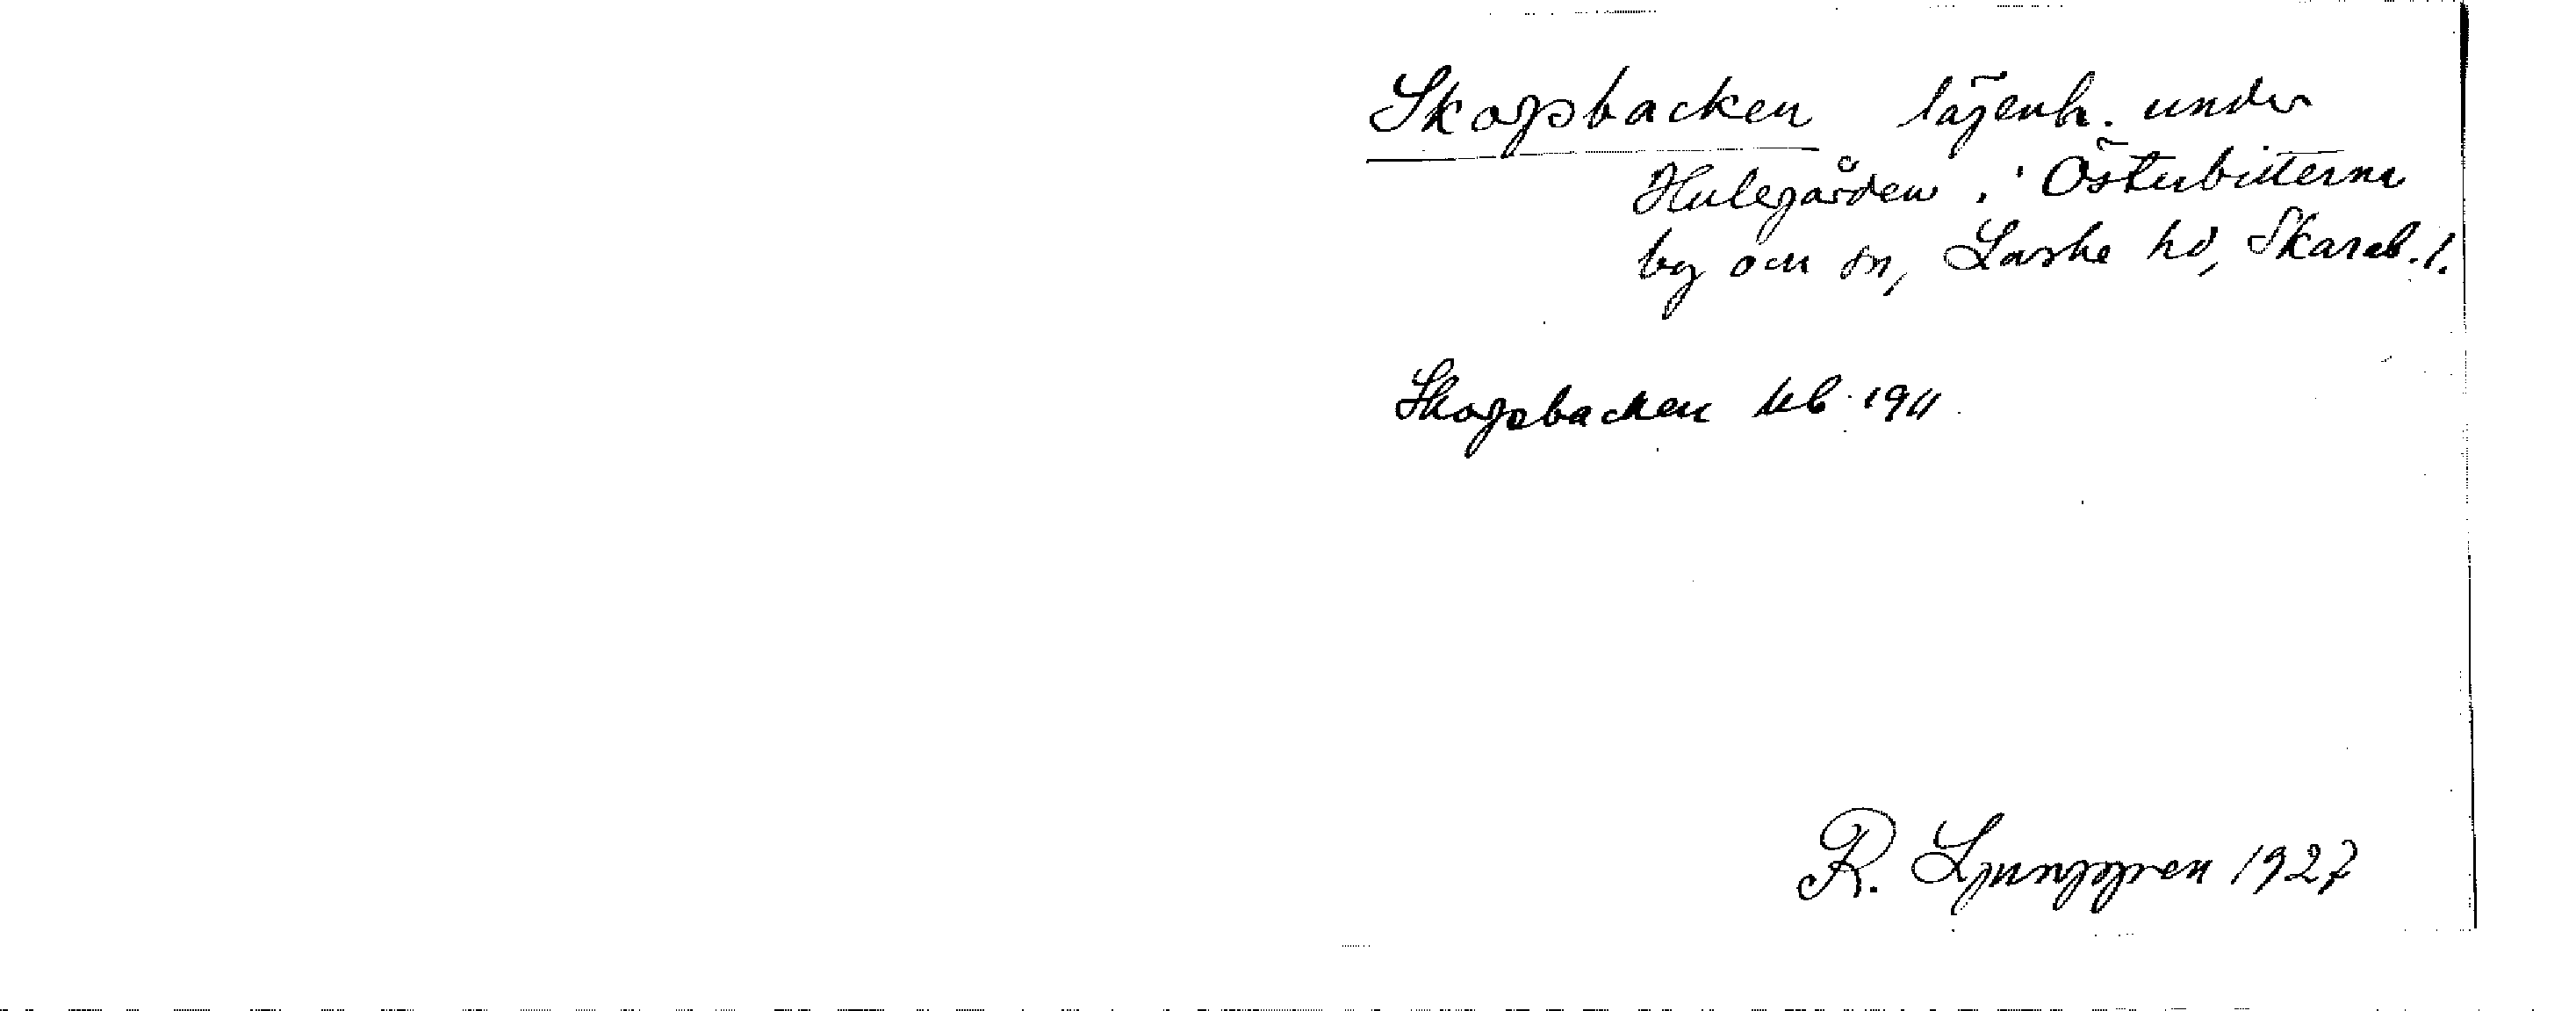 Skogsbacken lägenh. under
Hulegården i Österbitterna
by och sn, Laske hd, Skarab. l.
Skogsbacken kb 1911
R. Ljunggren 1927